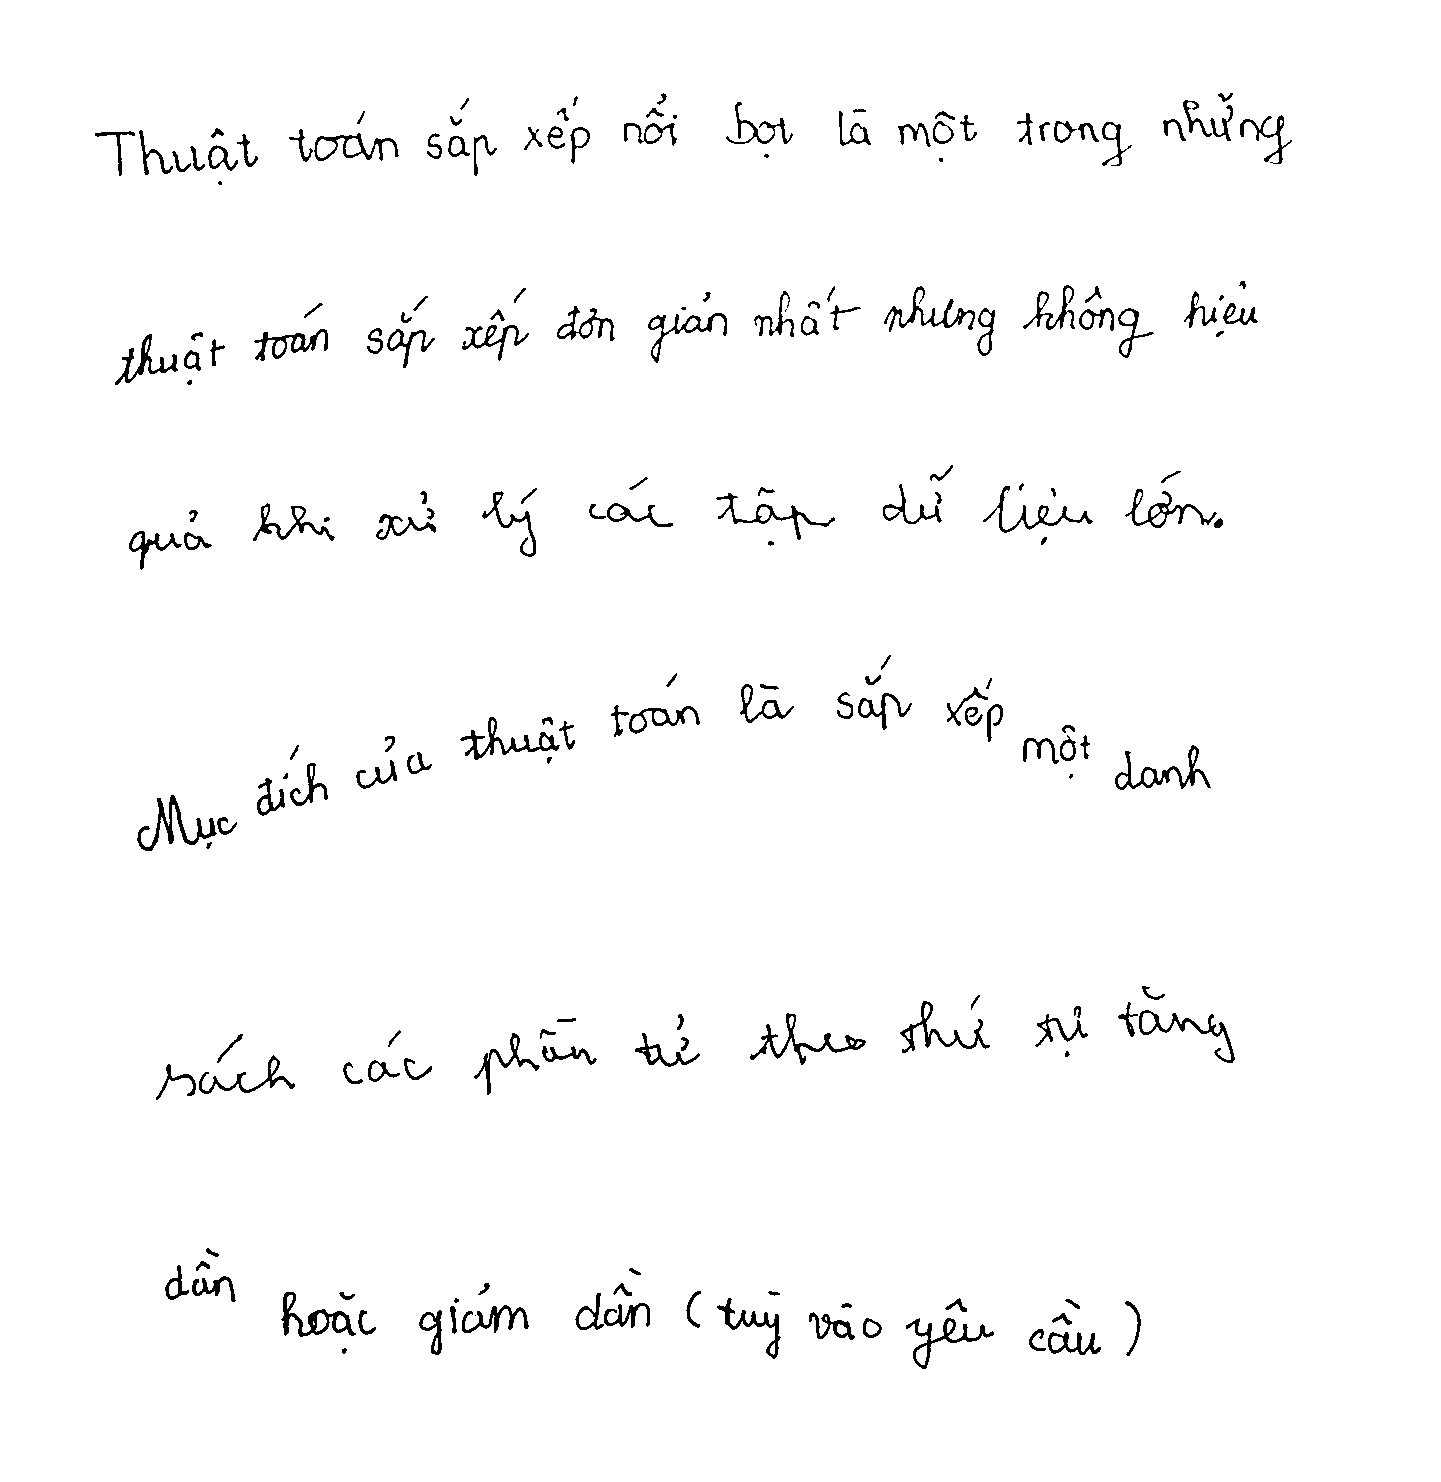 Thuật toán sắp xếp nổi bọt là một trong những
thuật toán sắp xếp đơn giản nhất nhưng không hiệu
quả khi xử lý các tập dữ liệu lớn.
Mục đích của thuật toán là sắp xếp một danh
sách các phần tử theo thứ tự tăng
dần hoặc giảm dần (tuỳ vào yêu cầu)